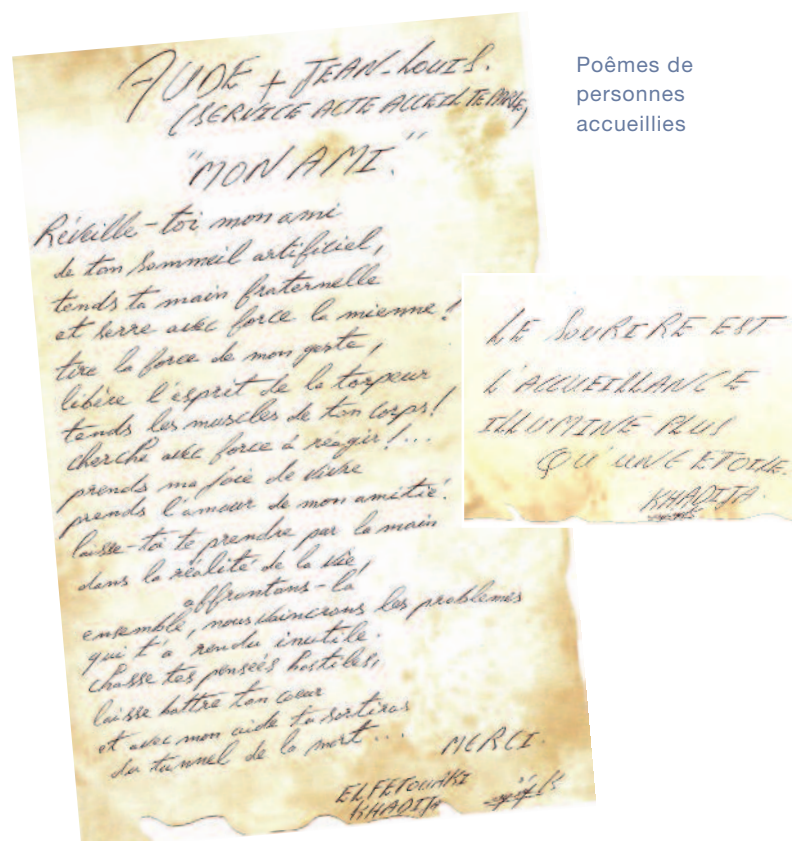 AUDE + JEAN-LOUIS.
(SERVICE ACTE ACCEIL TE PARLE)
"MON AMI."
Réveille-toi mon ami
de ton sommeil artificiel,
tends ta main fraternelle
et serre avec force la mienne !
tire la force de mon geste,
libère l'esprit de la torpeur
tends les muscles de ton corps !
cherche avec force à réagir !...
prends ma joie de vivre
prends l'amour de mon amitié.
laisse-toi te prendre par la main
dans la réalité de la vie,
affrontons-la
ensemble, nous vaincrons les problèmes
qui t'a rendu inutile.
Chasse tes pensées hostiles,
laisse battre ton cœur
et avec mon aide tu sortiras
du tunnel de la mort...
MERCI.
EL FETOUAKI
KHADIJA
Poêmes de
personnes
accueillies
LE SOURIRE EST
L'ACCUEILLANCE
ILLUMINE PLUS
QU'UNE ETOILE.
KHADIJA.